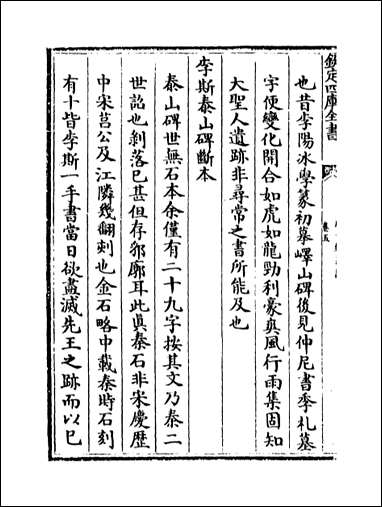 欽定四庫全書
卷五
也昔李陽冰學篆初摹嶧山碑後見仲尼書季札墓
字便變化開合如虎如龍勁利豪爽風行雨集固知
大聖人遺跡非尋常之書所能及也
李斯泰山碑斷本
泰山碑世無石本余僅有二十九字按其文乃秦二
世詔也剥落已甚但存郛廓耳此真秦石非宋慶歴
中宋莒公及江隣幾翻刻也金石略中載秦時石刻
有十皆李斯一手書當日欲盡滅先王之跡而以己